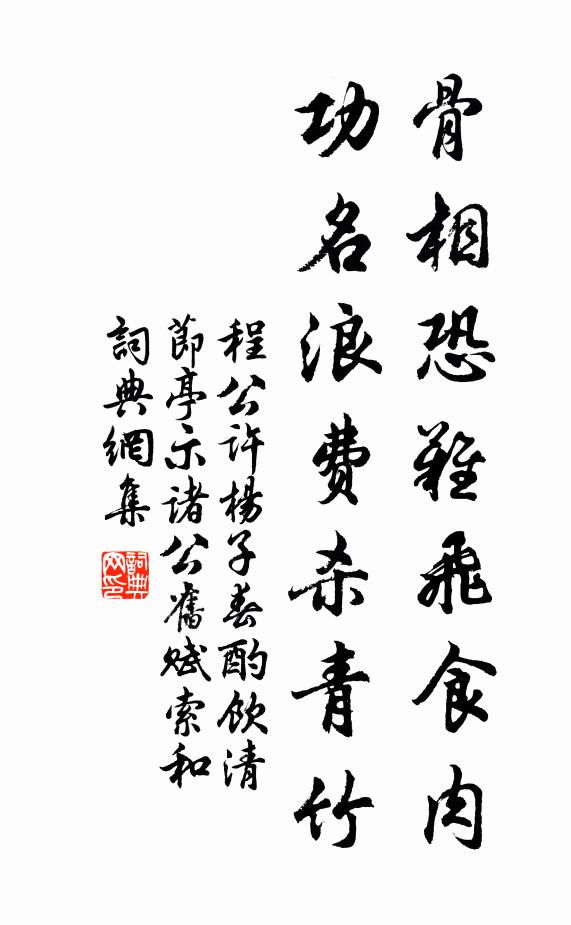 骨相恐難飛食肉
功名浪費杀青竹
程公许楊子春酌饮清
節亭示諸公舊赋索和
詞典網集
詞典网印